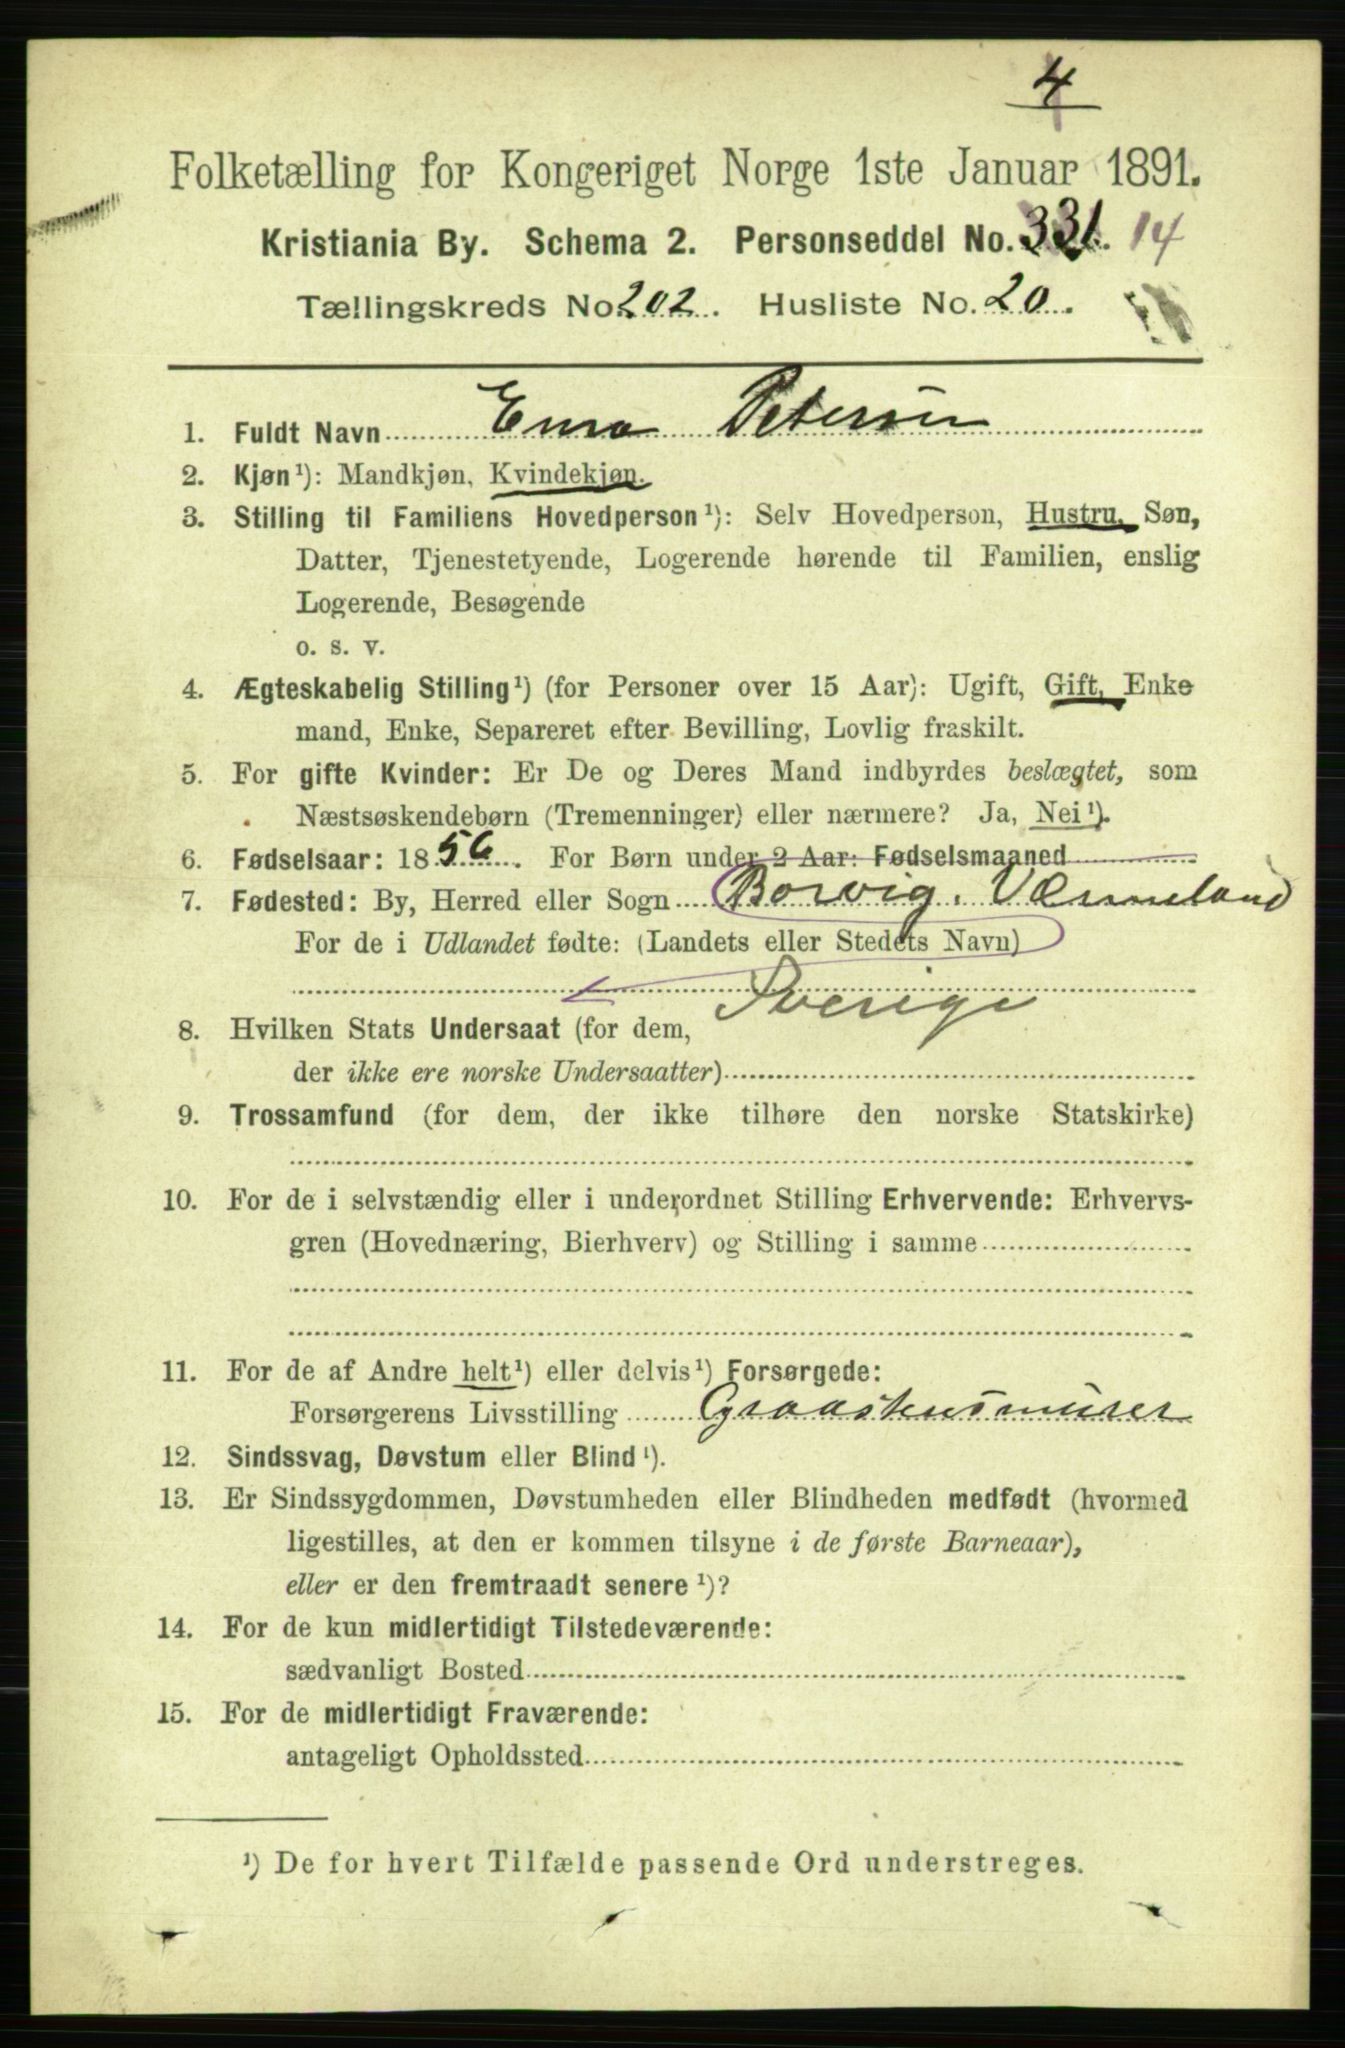 4
Folketælling for Kongeriget Norge 1ste Januar 1891.
Kristiania By. Schema 2. Personseddel No. 331. 14
Tællingskreds No. 202. Husliste No. 20.
1. Fuldt Navn Petersen
2. Kjøn¹): Mandkjøn, Kvindekjøn.
3. Stilling til Familiens Hovedperson¹): Selv Hovedperson, Hustru, Søn,
Datter, Tjenestetyende, Logerende hørende til Familien, enslig
Logerende, Besøgende
o. s. v.
4. Ægteskabelig Stilling¹) (for Personer over 15 Aar): Ugift, Gift, Enke
mand, Enke, Separeret efter Bevilling, Lovlig fraskilt.
5. For gifte Kvinder: Er De og Deres Mand indbyrdes beslægtet, som
Næstsøskendebørn (Tremenninger) eller nærmere? Ja, Nei¹).
6. Fødselsaar: 1856. For Børn under 2 Aar: Fødselsmaaned
7. Fødested: By, Herred eller Sogn Borvig. Værmeland
For de i Udlandet fødte: (Landets eller Stedets Navn)
Sverige
8. Hvilken Stats Undersaat (for dem,
der ikke ere norske Undersaatter)
9. Trossamfund (for dem, der ikke tilhøre den norske Statskirke)
10. For de i selvstændig eller i underordnet Stilling Erhvervende: Erhvervs-
gren (Hovednæring, Bierhverv) og Stilling i samme
11. For de af Andre helt¹) eller delvis¹) Forsørgede:
Forsørgerens Livsstilling Graastensmurer
12. Sindssvag, Døvstum eller Blind¹).
13. Er Sindssygdommen, Døvstumheden eller Blindheden medfødt (hvormed
ligestilles, at den er kommen tilsyne i de første Barneaar),
eller er den fremtraadt senere¹)?
14. For de kun midlertidigt Tilstedeværende:
sædvanligt Bosted
15. For de midlertidigt Fraværende:
antageligt Opholdssted
¹) De for hvert Tilfælde passende Ord understreges.